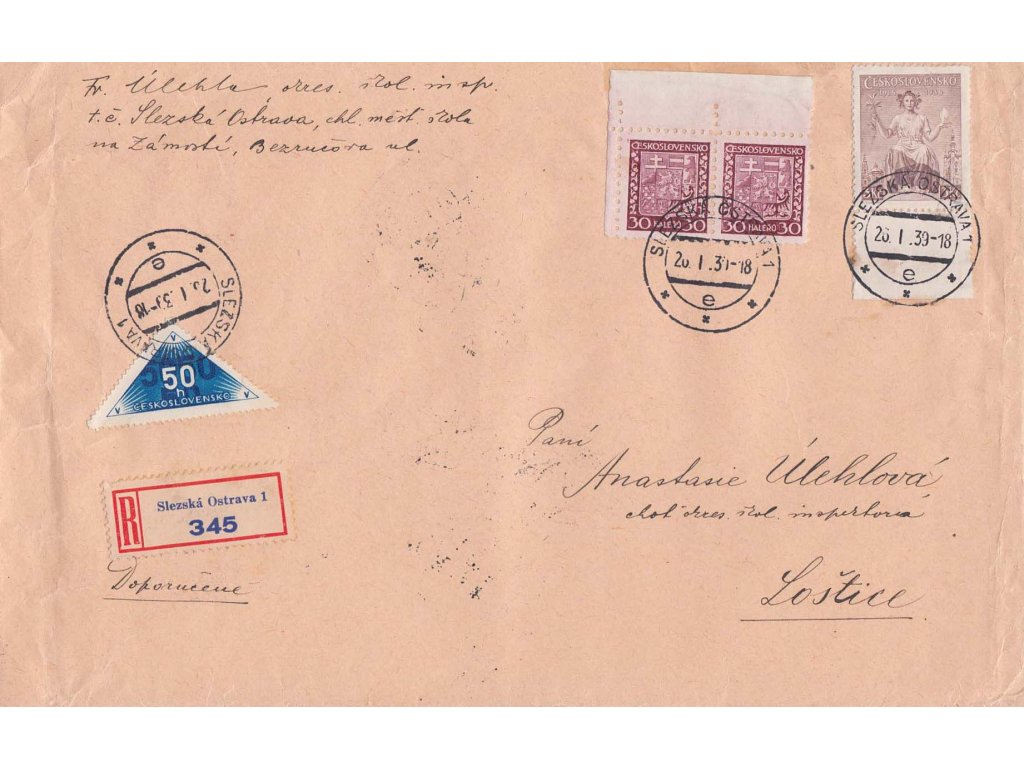 Fr. Úlehla okres. škol. insp.
t. č. Slezská Ostrava, chl. měšt. škola
na Zámostí, Bezručova ul.
ČESKOSLOVENSKO ČESKOSLOVENSKO
30 HALÉŘŮ 30 30 HALÉŘŮ 30
ČESKOSLOVENSKO
SLEZSKÁ OSTRAVA 1
26. I .39-18
e
SLEZSKÁ OSTRAVA 1
26. I .39-18
e
SLEZSKÁ OSTRAVA 1
26. I .39-18
e
V
50
h
V ČESKOSLOVENSKO V
R
Slezská Ostrava 1
345
Doporučeně
Paní
Anastasie Úlehlová
choť okres. škol. inspektora
Loštice